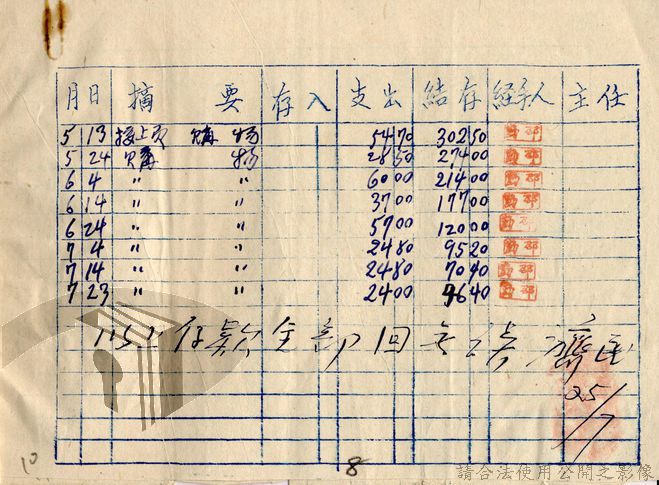 月 日 摘 要 存入 支出 結存 經手人 主任
5 13 接上頁 購 物 54 70 302 50
5 24 購 物 28 50 274 00
6 4 " " 60 00 214 00
6 14 " " 37 00 177 00
6 24 " " 57 00 120 00
7 4 " " 24 80 95 20
7 14 " " 24 80 70 40
7 23 " " 24 00 46 40
以上存款全部
25/7
10
8
請合法使用公開之影像